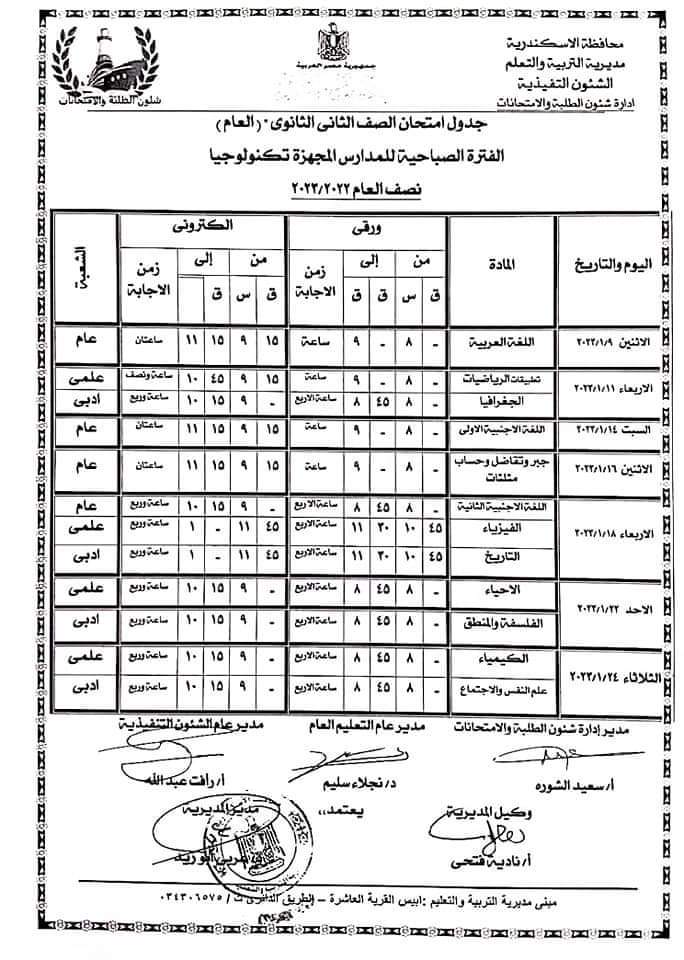 محافظة الاسكندرية
مديرية التربية والتعلم
الشئون التفيذية
إدارة شئون الطلبة والامتحانات
جمهورية مصر العربية
شئون الطلبة والامتحانات
جدول امتحان الصف الثانى الثانوى "(العام)
الفترة الصباحية للمدارس المجهزة تكنولوجيا
نصف العام ٢٠٢٣/٢٠٢٢
اليوم والتاريخ المادة ورقى الكترونى الشعبة
من إلى زمن الاجابة من إلى زمن الاجابة
ق س ق ق ق س ق
الاثنين ٢٠٢٣/١/٩ اللغة العربية - ٨ - ٩ ساعة ١٥ ٩ ١٥ ١١ ساعتان عام
الاربعاء ٢٠٢٣/١/١١ تطبيقات الرياضيات - ٨ - ٩ ساعة ١٥ ٩ ٤٥ ١٠ ساعة ونصف علمى
الجغرافيا - ٨ ٤٥ ٨ ساعة الاربع - ٩ ١٥ ١٠ ساعة وربع أدبى
السبت ٢٠٢٣/١/١٤ اللغة الاجنبية الاولى - ٨ - ٩ ساعة ١٥ ٩ ١٥ ١١ ساعتان عام
الاثنين ٢٠٢٣/١/١٦ جبر وتفاضل وحساب مثلثات - ٨ - ٩ ساعة ١٥ ٩ ١٥ ١١ ساعتان عام
الاربعاء ٢٠٢٣/١/١٨ اللغة الاجنبية الثانية - ٨ ٤٥ ٨ ساعة الاربع - ٩ ١٥ ١٠ ساعة وربع عام
الفيزياء ٤٥ ١٠ ٣٠ ١١ ساعة الاربع ٤٥ ١١ - ١ ساعة وربع علمى
التاريخ ٤٥ ١٠ ٣٠ ١١ ساعة الاربع ٤٥ ١١ - ١ ساعة وربع أدبى
الاحد ٢٠٢٣/١/٢٢ الاحياء - ٨ ٤٥ ٨ ساعة الاربع - ٩ ١٥ ١٠ ساعة وربع علمى
الفلسفة والمنطق - ٨ ٤٥ ٨ ساعة الاربع - ٩ ١٥ ١٠ ساعة وربع أدبى
الثلاثاء ٢٠٢٣/١/٢٤ الكيمياء - ٨ ٤٥ ٨ ساعة الاربع - ٩ ١٥ ١٠ ساعة وربع علمى
علم النفس والاجتماع - ٨ ٤٥ ٨ ساعة الاربع - ٩ ١٥ ١٠ ساعة وربع أدبى
مدير إدارة شئون الطلبة والامتحانات مدير عام التعليم العام مدير عام الشئون التنفيذية
أ/ سعيد الشوره د/ نجلاء سليم أ/ رافت عبد الله
وكيل المديرية يعتمد،، مدير المديرية
أ/ نادية فتحى
مبنى مديرية التربية والتعليم : ابيس القرية العاشرة – الطريق الدائرى ت / ٠٣٤٣٠٦٥٧٥